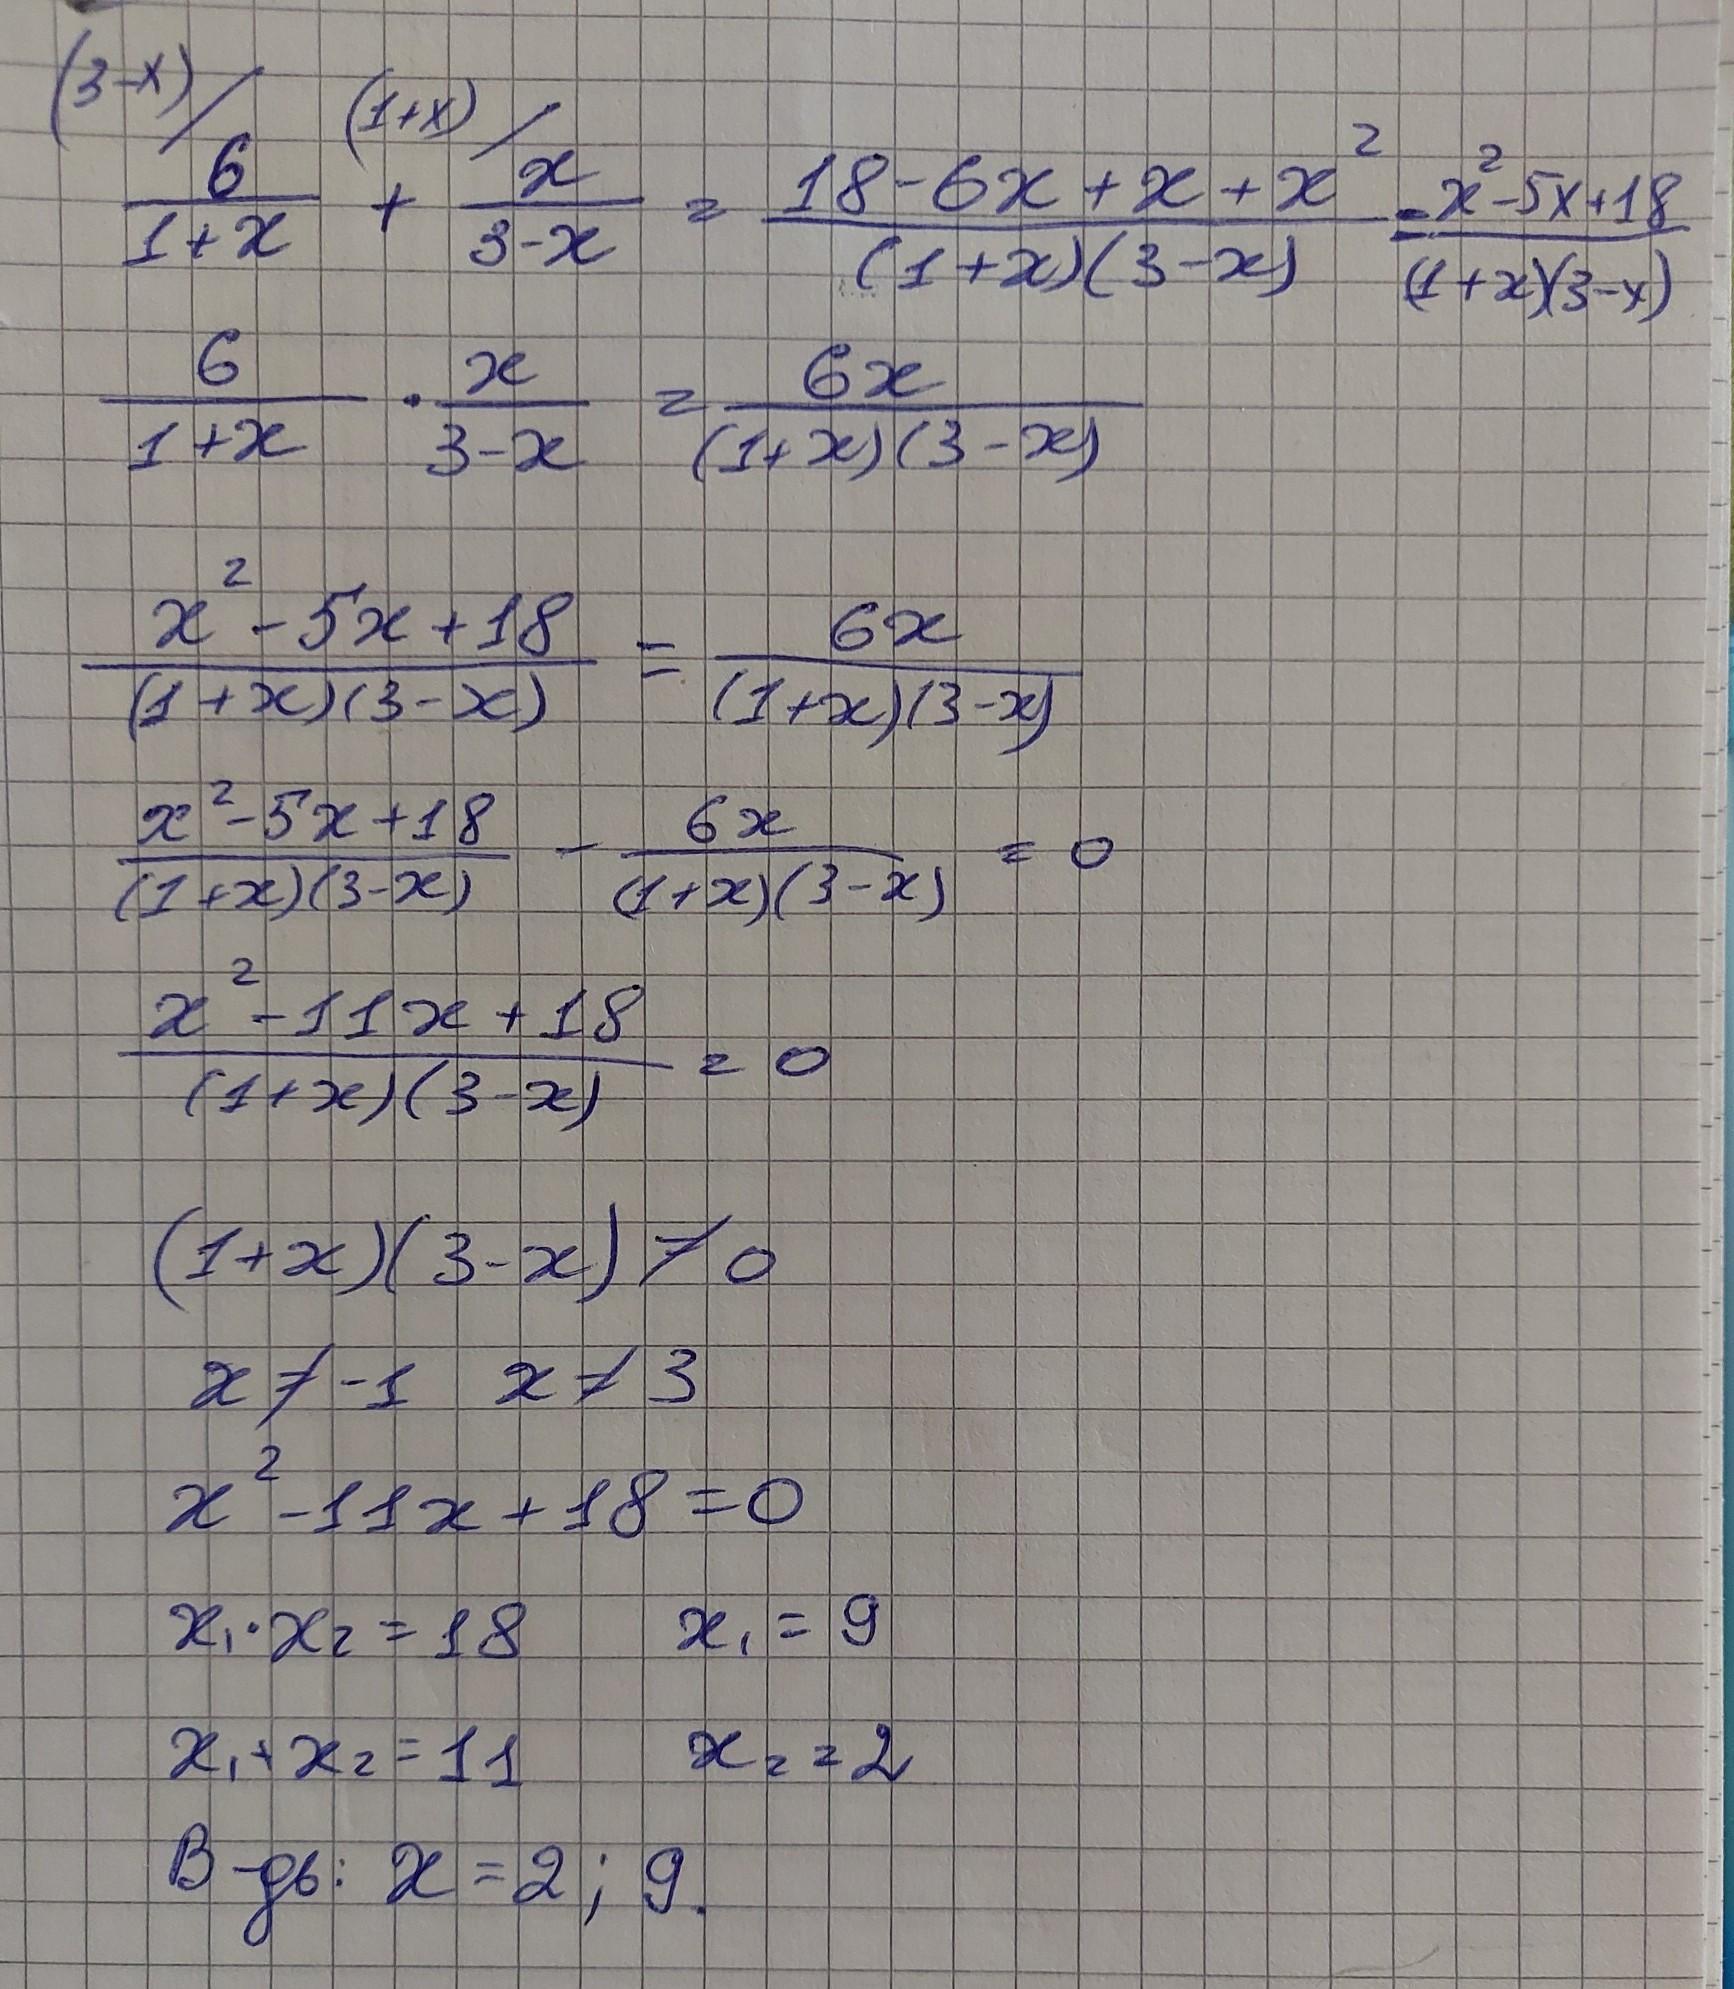 (3-x)/ (1+x)/
6/(1+x) + x/(3-x) = (18-6x+x+x²)/((1+x)(3-x)) = (x²-5x+18)/((1+x)(3-x))
6/(1+x) · x/(3-x) = 6x/((1+x)(3-x))
(x²-5x+18)/((1+x)(3-x)) = 6x/((1+x)(3-x))
(x²-5x+18)/((1+x)(3-x)) - 6x/((1+x)(3-x)) = 0
(x²-11x+18)/((1+x)(3-x)) = 0
(1+x)(3-x) ≠ 0
x ≠ -1 x ≠ 3
x²-11x+18=0
x₁·x₂=18 x₁=9
x₁+x₂=11 x₂=2
В-дь: x=2; 9.